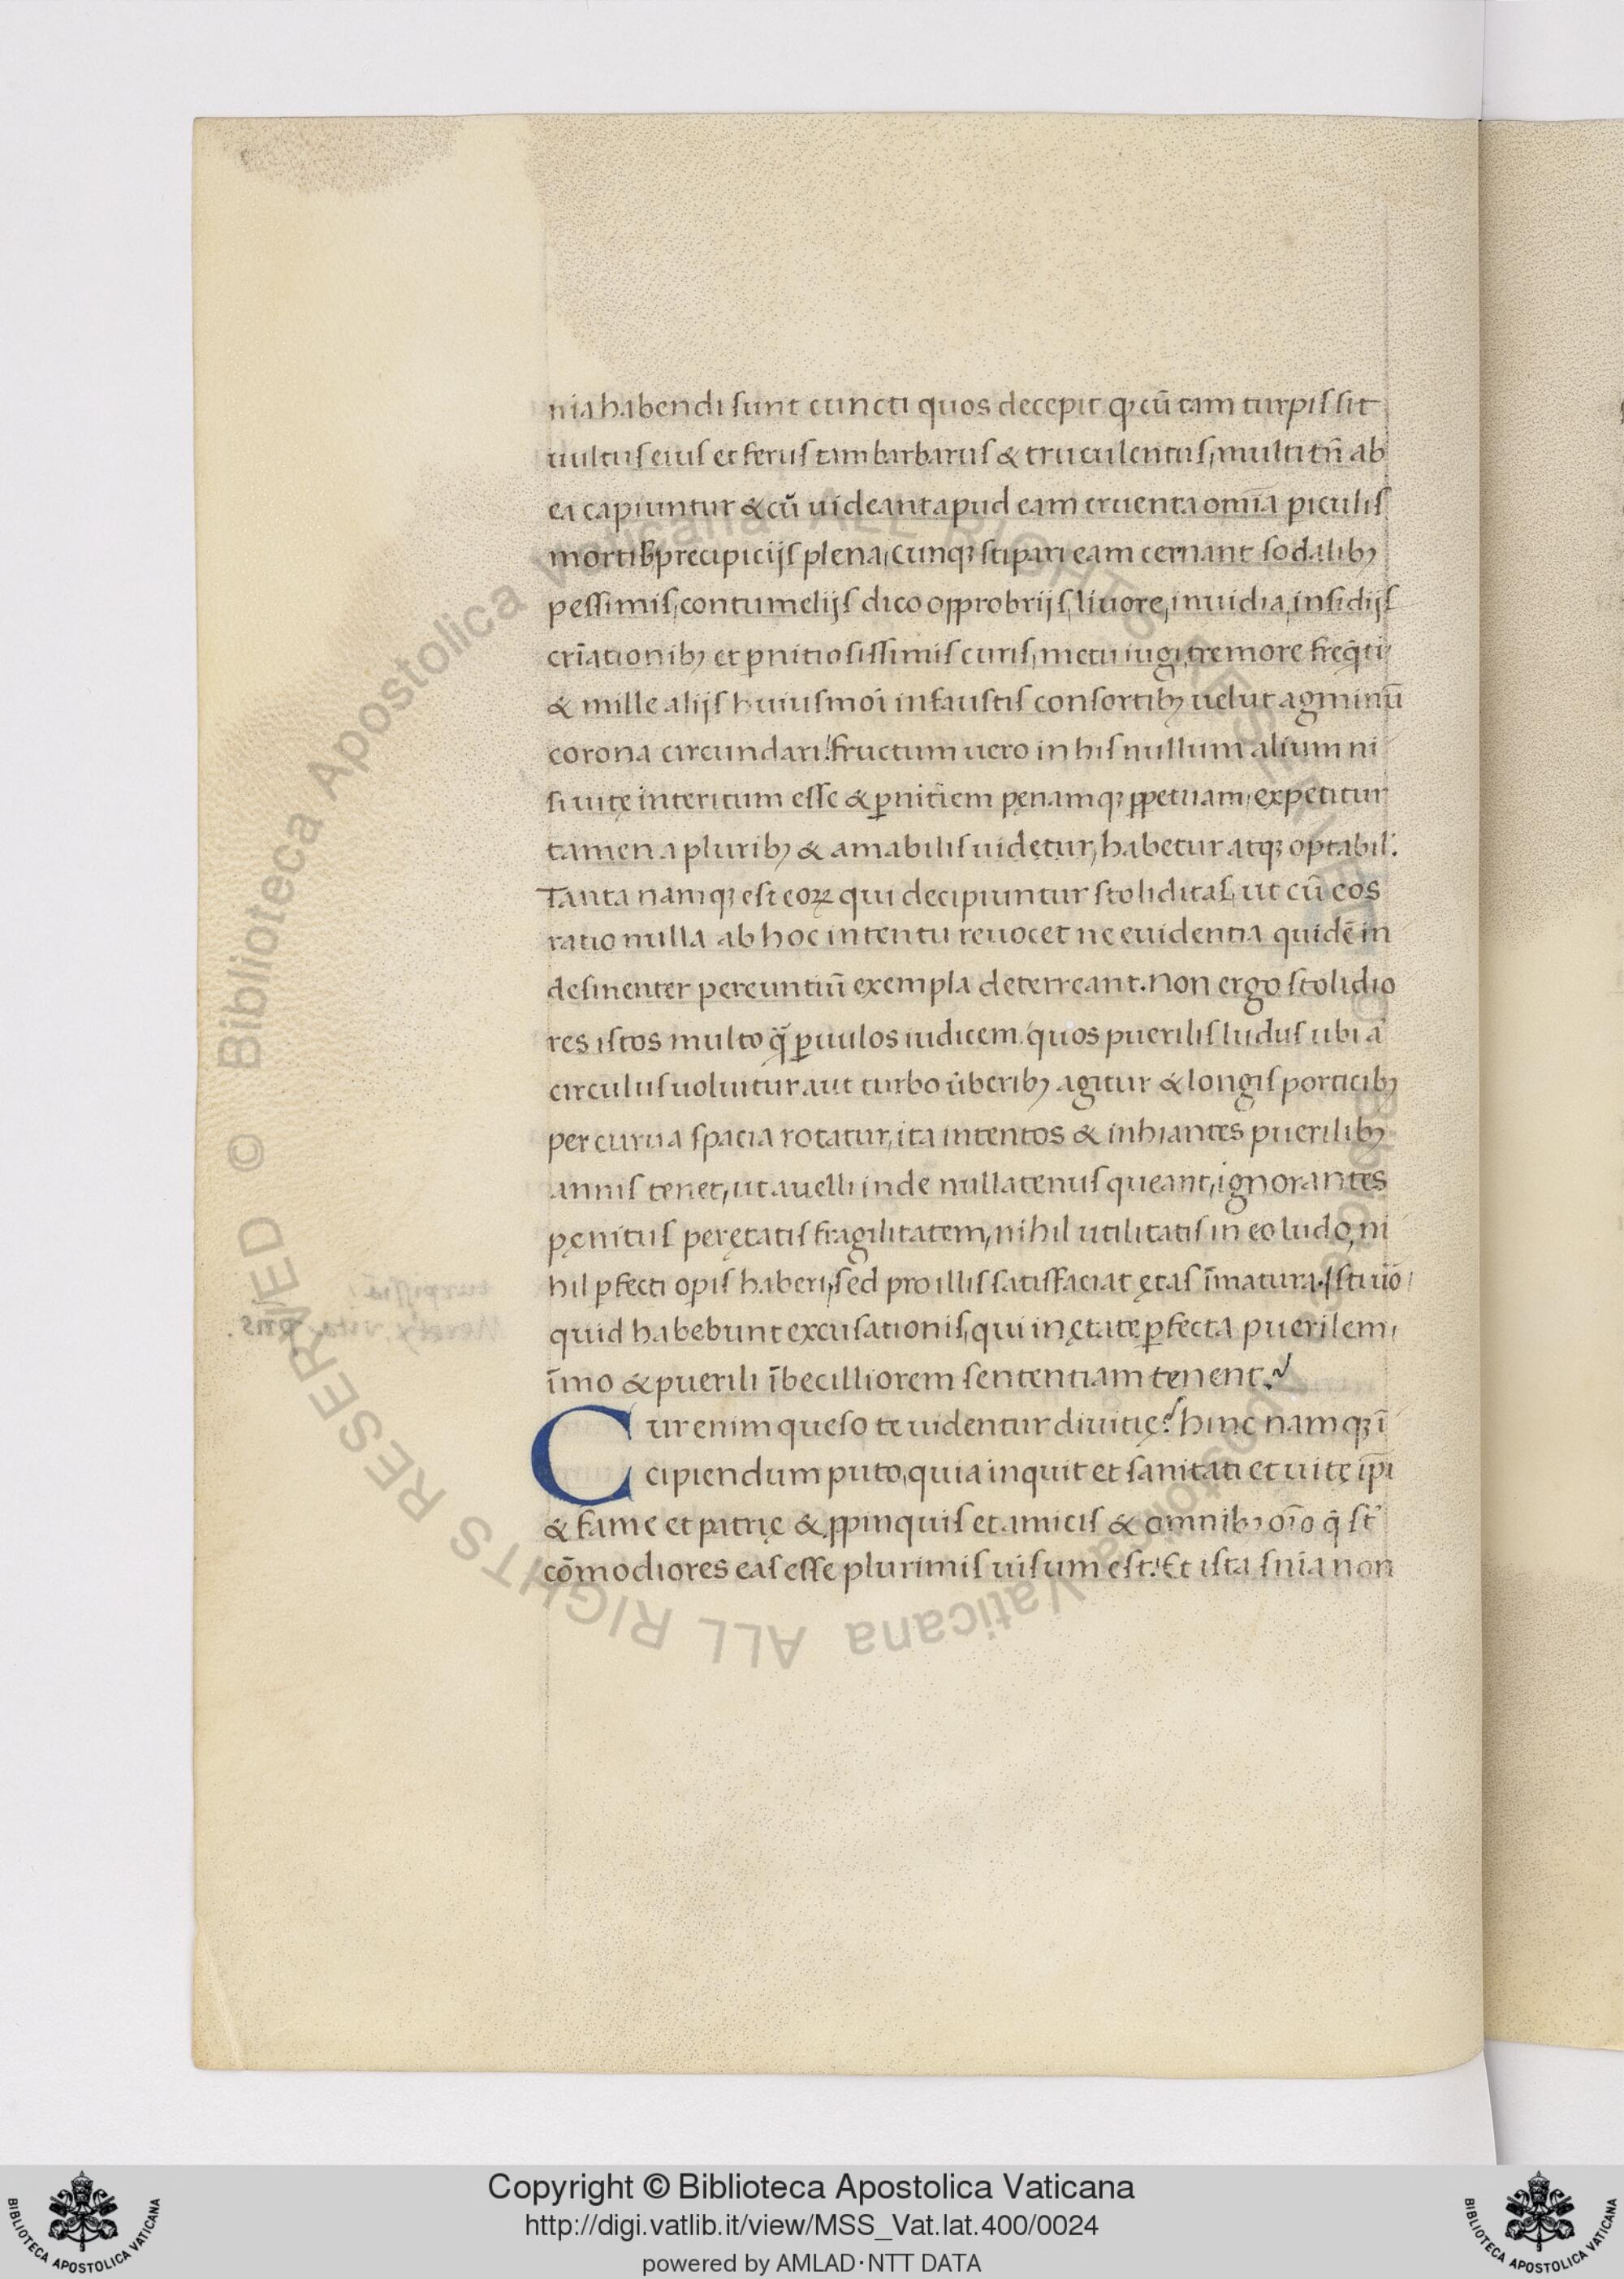 nia habendi sunt cuncti quos decepit qꝫ cū tam turpis sit
uultus eius et ferus tam barbarus & truculentus, multi tn̄ ab
ea capiuntur & cū uideant apud eam cruenta om̄ia piculis
mortibꝫ precipicijs plena, cunqꝫ stipari eam cernant sodalibꝫ
pessimis, contumelijs dico opprobrijs, liuore, inuidia, insidijs
crīationibꝫ et ꝑnitiosissimis curis, metu iugi, tremore freq̄ti
& mille alijs huiusmoi infaustis consortibꝫ uelut agminū
corona circundari! fructum uero in his nullum alium ni
si uitę interitum esse & ꝑnitiem pęnamqꝫ ꝓpetuam, expetitur
tamen a pluribꝫ & amabilis uidetur, habetur atqꝫ optabil'.
Tanta namqꝫ est eoꝝ qui decipiuntur stoliditas, ut cū eos
ratio nulla ab hoc intentu reuocet ne euidentia quidē in
desinenter pereuntiū exempla deterreant. Non ergo stolidio
res istos multo q̄ꝫ ꝑuulos iudicem. quos puerilis ludus ubi a
circulus uoluitur aut turbo ūberibꝫ agitur & longis porticibꝫ
per curua spacia rotatur, ita intentos & inhiantes puerilibꝫ
annis tenet, ut auelli inde nullatenus queant, ignorantes
pęnitus per ętatis fragilitatem, nihil utilitatis in eo ludo, ni
hil ꝑfecti opis haberi, sed pro illis satisfaciat ętas īmatura. Isti uō
quid habebunt excusationis, qui in ętate ꝑfecta puerilem,
īmo & puerili ībecilliorem sententiam tenent.
Cur enim queso te uidentur diuitię? hinc namqꝫ ī
cipiendum puto, quia inquit et sanitati et uitę ip̄i
& fame et patrię & ꝓpinquis et amicis & omnibꝫ oīo q̄ st̄
cōmodiores eas esse plurimis uisum est! Et ista sn̄ia non
Copyright © Biblioteca Apostolica Vaticana
http://digi.vatlib.it/view/MSS_Vat.lat.400/0024
powered by AMLAD·NTT DATA
BIBLIOTECA APOSTOLICA VATICANA
BIBLIOTECA APOSTOLICA VATICANA
© Biblioteca Apostolica Vaticana ALL RIGHTS RESERVED © Biblioteca Apostolica Vaticana ALL RIGHTS RESERVED